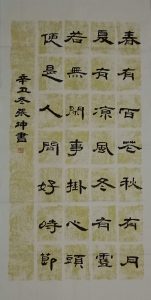 春有百花秋有月
夏有凉風冬有雪
若無閒事掛心頭
便是人間好時節
辛丑冬張坤書